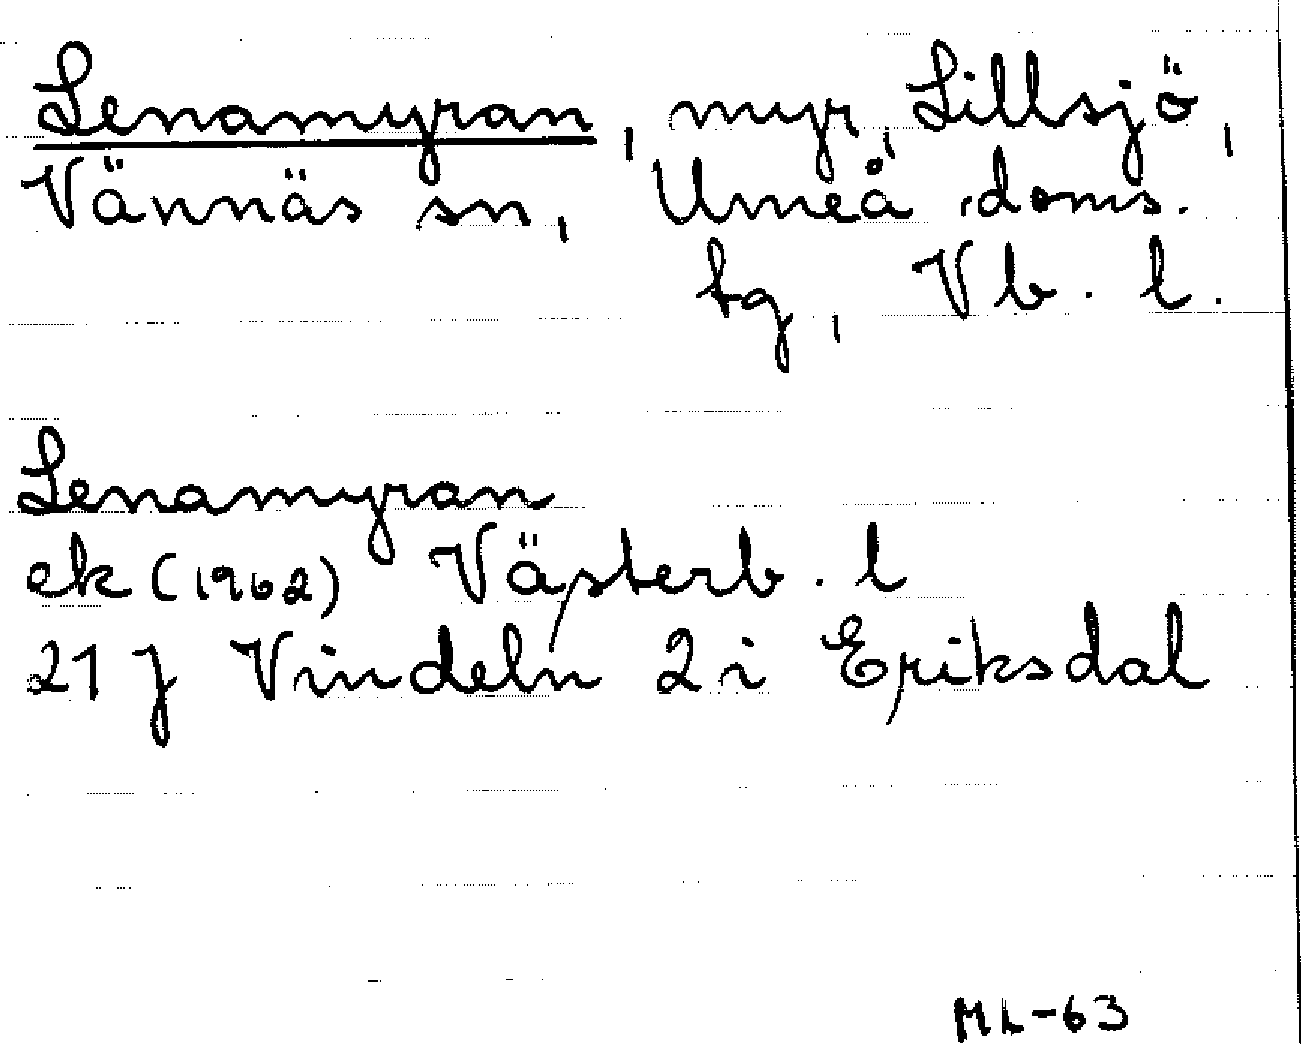 Lenamyran, myr, Lillsjö,
Vännäs sn, Umeå doms.
tg, Vb. l.
Lenamyran
ek (1962) Västerb. l
21 J Vindeln 2 i Eriksdal
ML-63